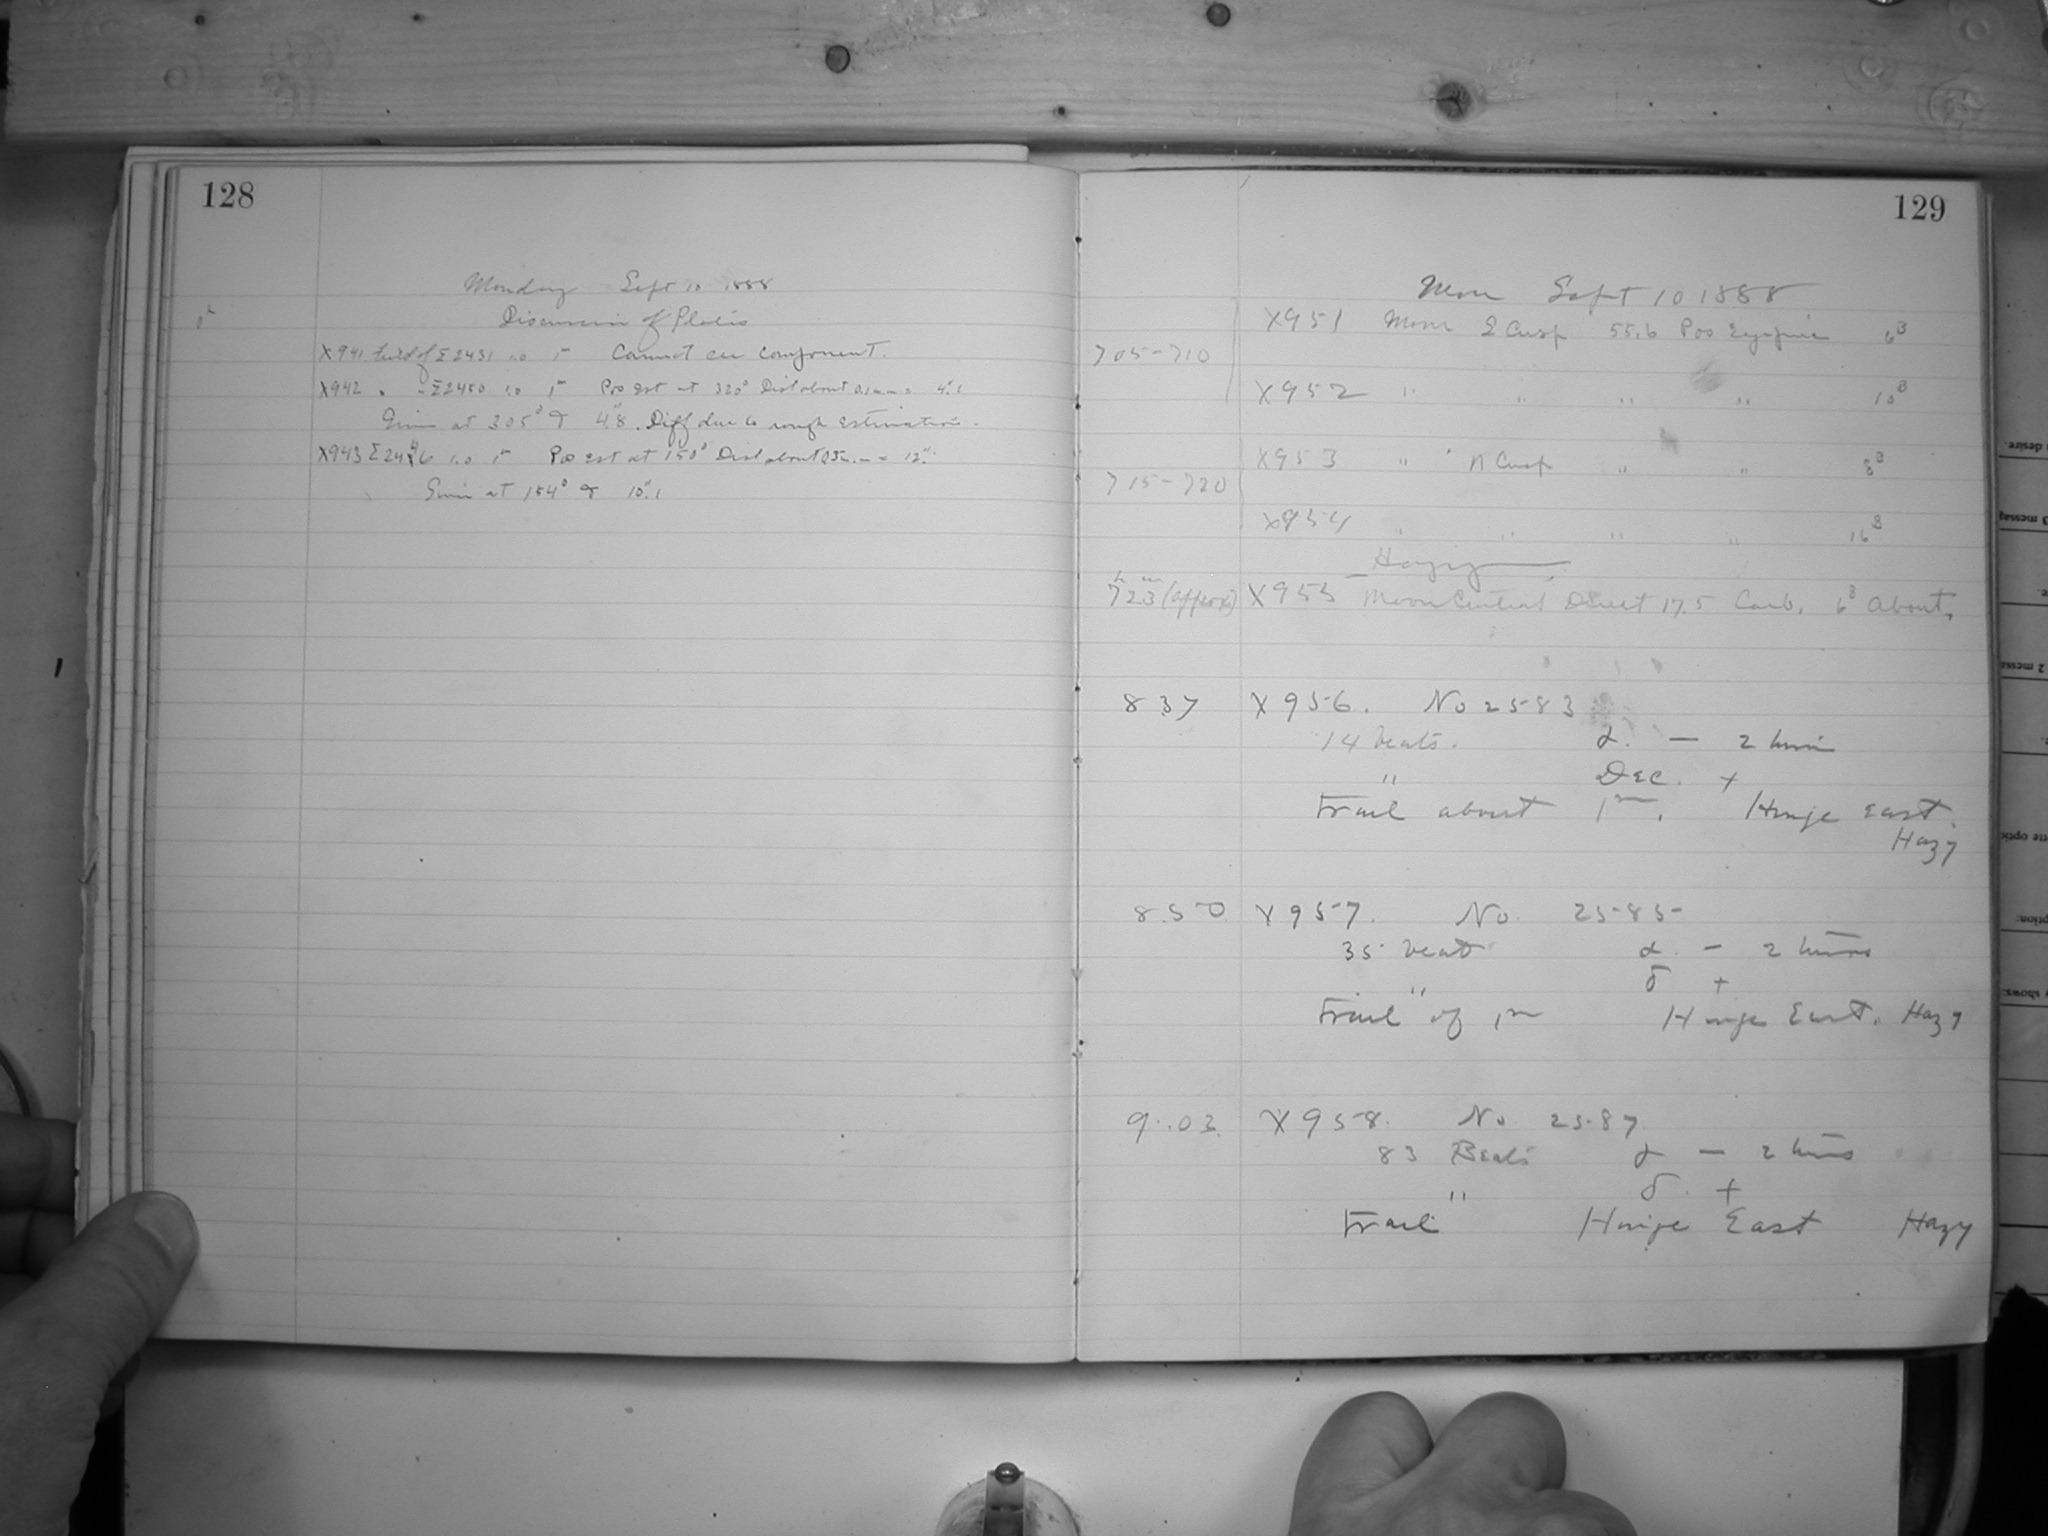 128
Monday Sept 10 1888
Discussion of Plates
X941 field of Σ2431 1.0 1m Cannot see component.
X942 " Σ2450 1.0 1m Pos est at 320° Dist about 0.1 m.m = 4".
Given at 305° & 4".8. Diff due to rough estimation.
X943 Σ24 6 1.0 1m Pos est at 150° Dist about m.m = 12".
Given at 154° & 10".1
129
Mon Sept 10 1888
X951 Moon S Cusp 55.6 Pos Eyepiece 6B
705-710
X952 " " " " 10B
X953 " N Cusp " " 8B
715-720
X954 " " " " 16B
Hazy
7h 23m (approx) X955 Moon Central Direct 17.5 Carb. 6B About.
8 37 X956. No 2583
14 beats. α. - 2 hrs
" Dec. +
Trail about 1m. Hinge East.
Hazy
8.50 X957. No. 2585
35 beats α. - 2 hours
" δ +
Trail of 1m Hinge East. Hazy
9.03. X958. No. 2587
83 Beats α - 2 hrs
" δ. +
Trail " Hinge East Hazy